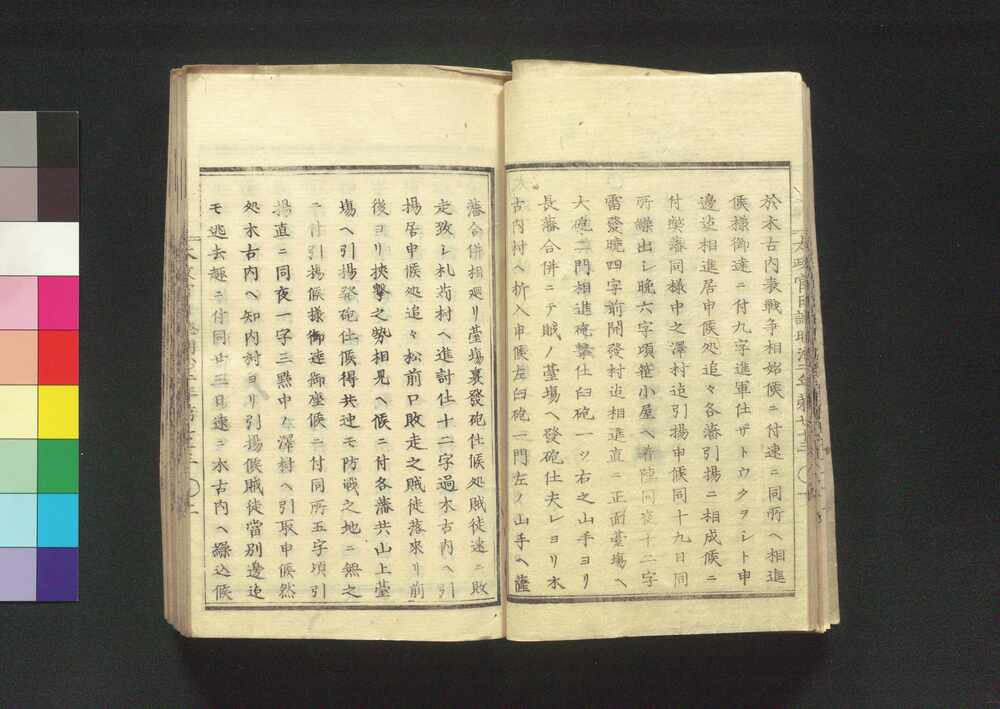 於木古内表戦争相始候ニ付速ニ同所ヘ相進
候様御達ニ付九字進軍仕ザトウクヲシト申
邊迠相進居申候処追々各藩引揚ニ相成候ニ
付弊藩同様中之澤村迠引揚申候同十九日同
所繰出シ晩六字頃笹小屋ヘ着陣同夜十二字
雷發曉四字前開發村迠相進直ニ正面臺塲ヘ
大砲二門相進掩撃仕臼砲一ツ右之山手ヨリ
長藩合併ニテ賊ノ臺塲ヘ發砲仕夫レヨリ木
古内村ヘ折入申候左臼砲一門左ノ山手ヘ薩
藩合併相廻リ臺塲裏發砲仕候処賊徒速ニ敗
走致シ札苅村ヘ進討仕十二字過木古内ヘ引
揚居申候処追々松前口敗走之賊徒落来リ前
後ヨリ挟撃之勢相見ヘ候ニ付各藩共山上臺
塲ヘ引揚發砲仕候得共迚モ防戦之地ニ無之
ニ付引揚候様御達御座候ニ付同所五字頃引
揚直ニ同夜一字三點中ノ澤村ヘ引取申候然
処木古内ヘ知内村ヨリ引揚候賊徒當別邊迠
モ逃去趣ニ付同廿三日速ニ木古内ヘ繰込候
太政官日誌明治二年第七十三